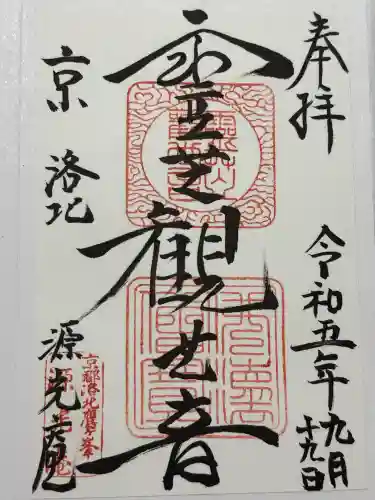 奉拝
令和五年九月
十九日
霊芝観世音
京洛北
源光庵
京都洛北鷹峯